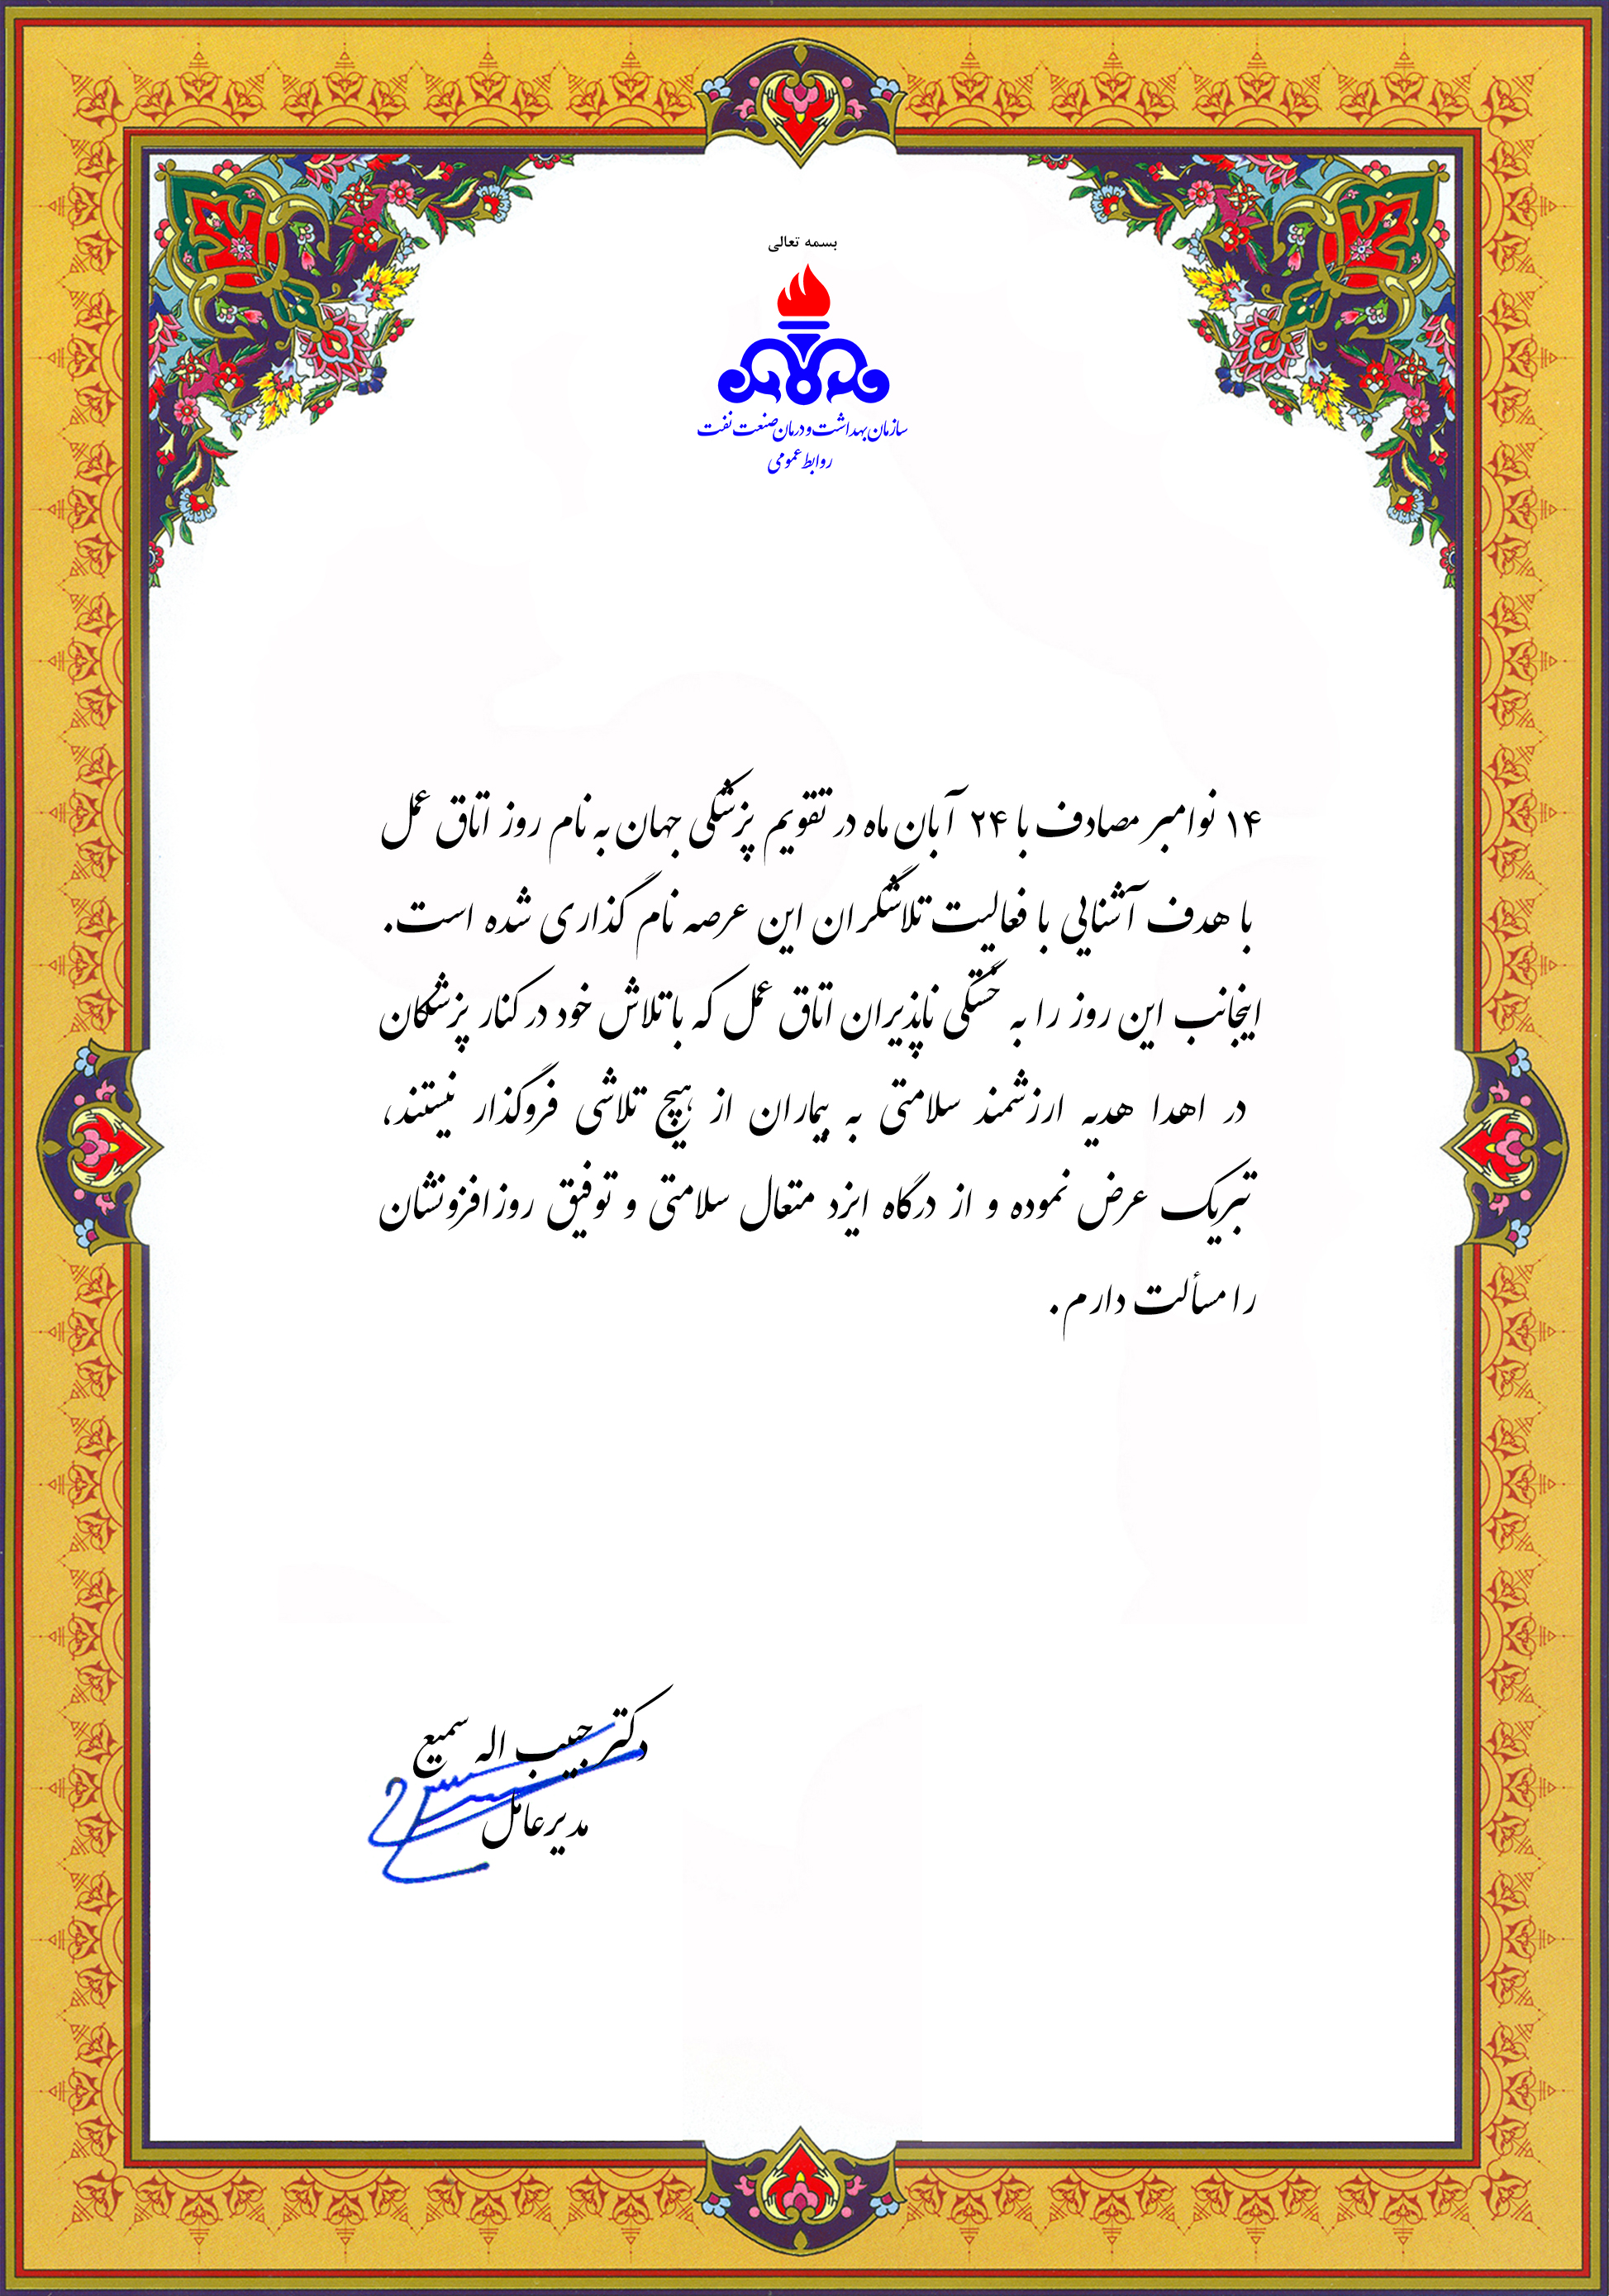 بسمه تعالی
سازمان بهداشت و درمان صنعت نفت
روابط عمومی
۱۴ نوامبر مصادف با ۲۴ آبان ماه در تقویم پزشکی جهان به نام روز اتاق عمل
با هدف آشنایی با فعالیت تلاشگران این عرصه نام گذاری شده است.
اینجانب این روز را به خستگی ناپذیران اتاق عمل که با تلاش خود در کنار پزشکان
در اهدا هدیه ارزشمند سلامتی به بیماران از هیچ تلاشی فروگذار نیستند،
تبریک عرض نموده و از درگاه ایزد متعال سلامتی و توفیق روزافزونشان
را مسألت دارم.
دکتر حبیب اله سمیع
مدیرعامل